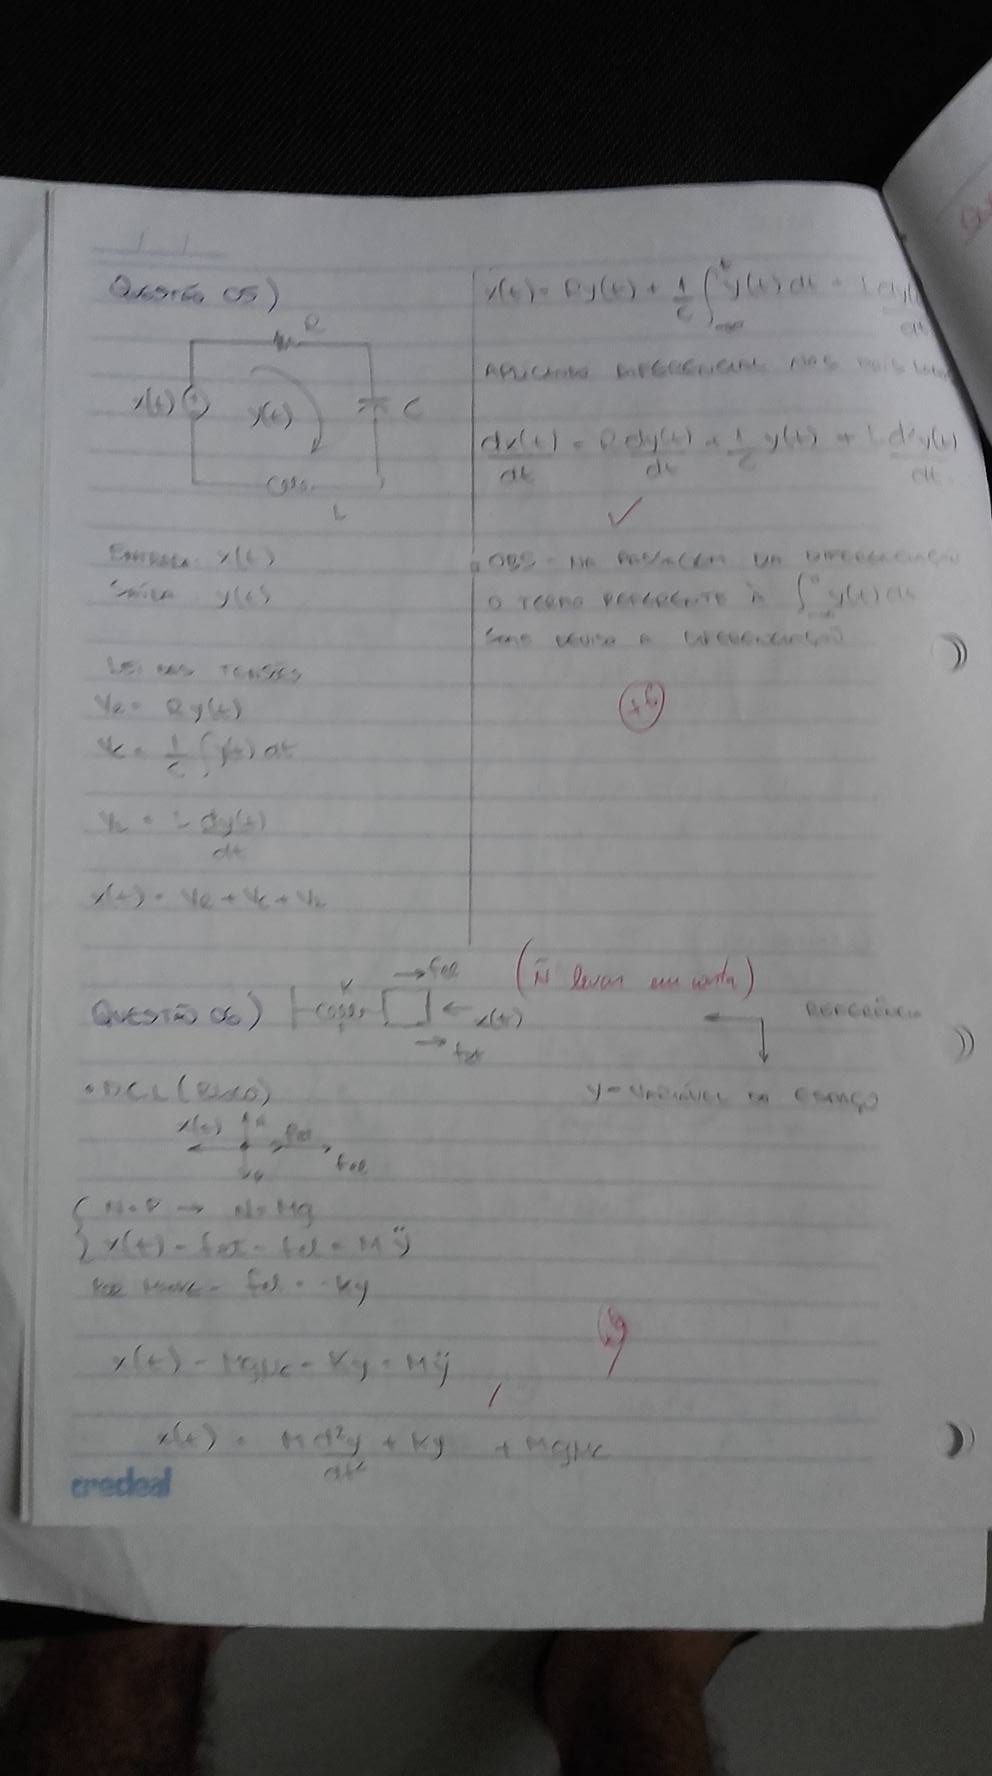 Questão 05)
R
x(t)
y(t)
C
L
Entrada: x(t)
Saída: y(t)
Lei das tensões
VR = R y(t)
Vc = 1/C ∫ y(t) dt
VL = L dy(t)/dt
x(t) = VR + Vc + VL
x(t) = R y(t) + 1/C ∫ y(t) dt + L dy(
Aplicando diferencial nos dois
dx(t)/dt = R dy(t)/dt + 1/C y(t) + L d²y(t)/dt
OBS - Na passagem da diferenciação
o termo referente à ∫ y(t) dt
a diferenciação
Questão 06)
K
fel
x(t)
fat
(ñ levar em conta)
Referência
y = variável de espaço
• DCL (Bloco)
x(t)
N
fat
fel
N = P → N = Mg
x(t) - fat - fel = Mÿ
fel = -Ky
x(t) - Mgμc - Ky = Mÿ
x(t) = M d²y/dt² + Ky + Mgμc
credeal